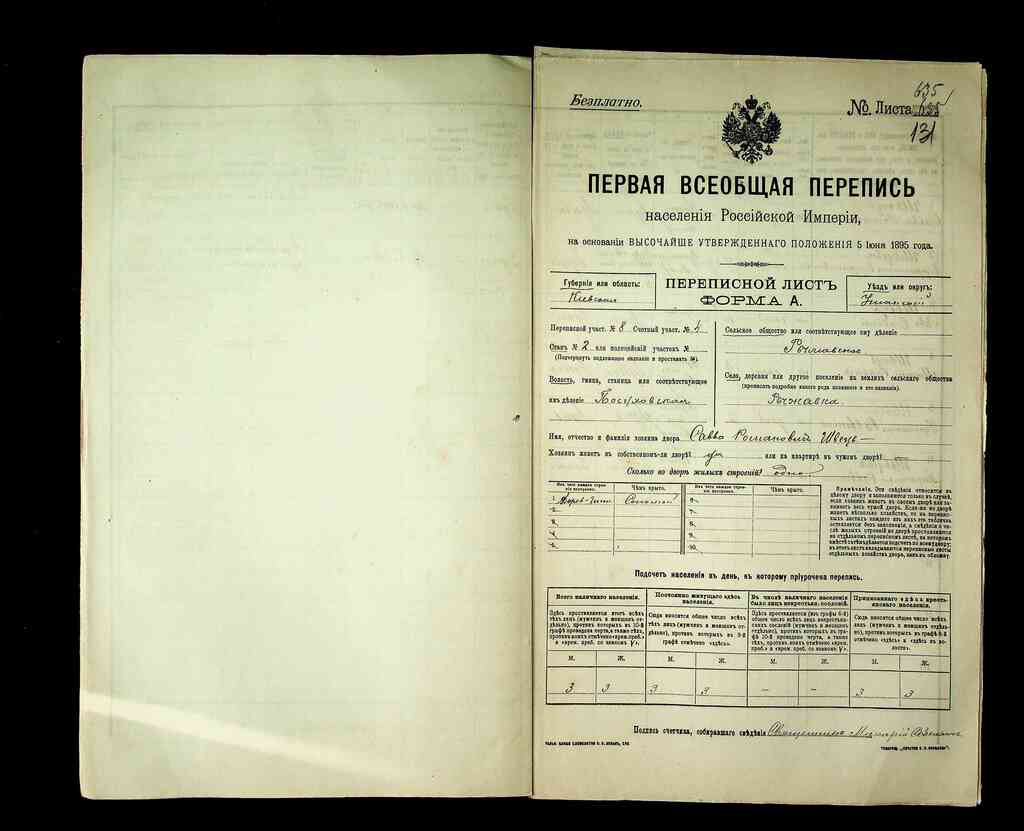 Безплатно.
№ Листа 635
131
ПЕРВАЯ ВСЕОБЩАЯ ПЕРЕПИСЬ
населенія Россійской Имперіи,
на основаніи ВЫСОЧАЙШЕ УТВЕРЖДЕННАГО ПОЛОЖЕНІЯ 5 Іюня 1895 года.
Губернія или область:
Кіевская
ПЕРЕПИСНОЙ ЛИСТЪ
ФОРМА А.
Уѣздъ или округъ:
Уманскій
Переписной участ. № 8 Счетный участ. № 4
Станъ № 2 или полицейскій участокъ №
(Подчеркнуть подлежащее названіе и проставить №).
Волость, гмина, станица или соотвѣтствующее
имъ дѣленіе
Сельское общество или соотвѣтствующее ему дѣленіе
Село, деревня или другое поселеніе на земляхъ сельскаго общества
(прописать подробно какого рода поселеніе и его названіе).
Рыжавка
Имя, отчество и фамилія хозяина двора Савва Романовъ Швецъ
Хозяинъ живетъ въ собственномъ-ли дворѣ? или на квартирѣ въ чужомъ дворѣ? —
Сколько во дворѣ жилыхъ строеній? одно
Изъ чего каждое строеніе построено.
Чѣмъ крыто.
Изъ чего каждое строеніе построено.
Чѣмъ крыто.
1. Соломой
2.
3.
4.
5.
6.
7.
8.
9.
10.
Примѣчаніе. Эти свѣдѣнія относятся къ
цѣлому двору и заполняются только въ случаѣ,
если хозяинъ живетъ въ своемъ дворѣ или за-
нимаетъ весь чужой дворъ. Если-же во дворѣ
живетъ нѣсколько хозяйствъ, то на перепис-
ныхъ листахъ каждаго изъ нихъ эта табличка
оставляется безъ заполненія, а свѣдѣнія о чи-
слѣ жилыхъ строеній во дворѣ проставляются
на отдѣльномъ переписномъ листѣ, на которомъ
Подсчетъ населенія въ день, къ которому пріурочена перепись.
Всего наличнаго населенія.
Постоянно живущаго здѣсь
населенія.
Въ числѣ наличнаго населенія
было лицъ некрестьян. сословій.
Приписаннаго здѣсь кресть-
янскаго населенія.
Здѣсь проставляется итогъ всѣхъ
тѣхъ лицъ (мужчинъ и женщинъ от-
дѣльно), противъ которыхъ въ 10-й
графѣ проведена черта, а также тѣхъ,
противъ коихъ отмѣчено «врем. преб.»
Сюда вносится общее число всѣхъ
тѣхъ лицъ (мужчинъ и женщинъ от-
дѣльно), противъ которыхъ въ 9-й
графѣ отмѣчено «здѣсь».
Здѣсь проставляется (изъ графы 6-й)
общее число всѣхъ лицъ некрестьян-
скихъ сословій (мужчинъ и женщинъ
отдѣльно), противъ которыхъ въ гра-
фѣ 10-й проведена черта, а также
тѣхъ, противъ коихъ отмѣчено «врем.
Сюда вносится общее число всѣхъ
лицъ (мужчинъ и женщинъ отдѣльно),
противъ которыхъ въ графѣ 8-й
отмѣчено «здѣсь» и «здѣсь въ во-
лости».
М. Ж. М. Ж. М. Ж. М. Ж.
3 3 3 3 – – 3 3
Подпись счетчика, собиравшаго свѣдѣнія Священникъ